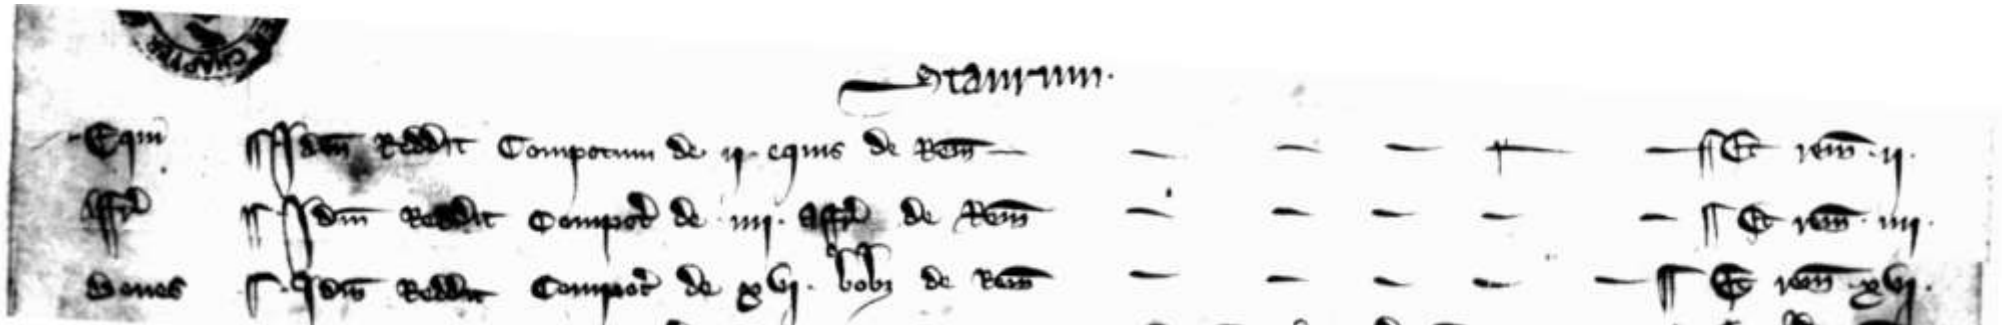 CHAPTER
Staurum.
Equi Idem Reddit Compotum de ij. equis de Rem — — — — — — Et rem. ij.
Affr Idem Reddit Compot de iiij. Affr de Rem — — — — — Et rem. iiij.
Boues Idem Reddit Compot de xvj. bobz de Rem — — — — — Et rem. xvj.